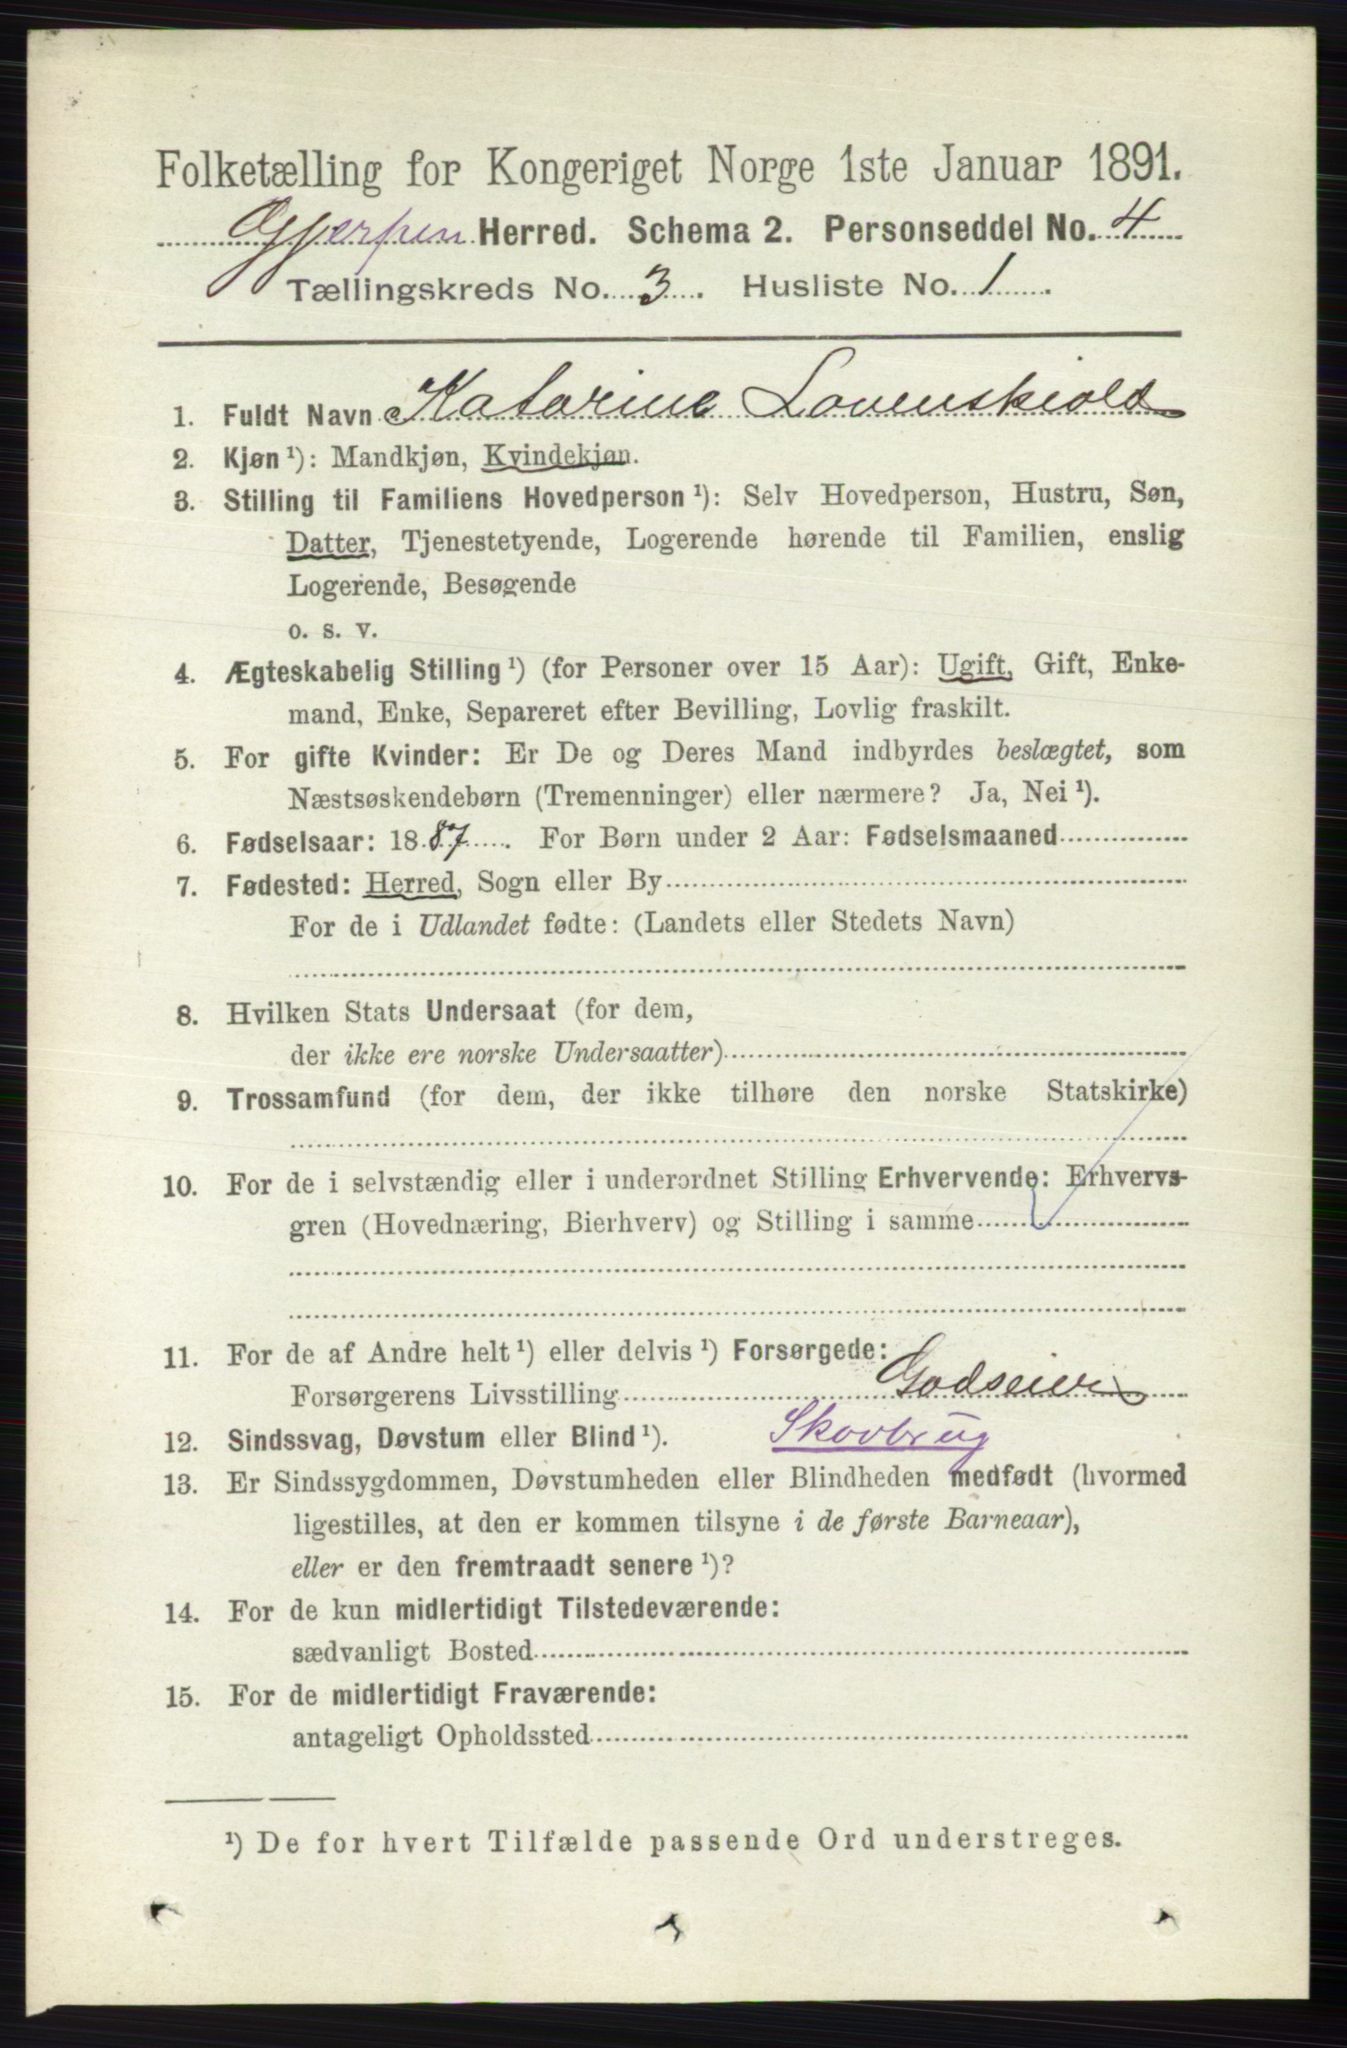 Folketælling for Kongeriget Norge 1ste Januar 1891.
Gjerpen Herred. Schema 2. Personseddel No. 4
Tællingskreds No. 3. Husliste No. 1.
1. Fuldt Navn Katarine Lovenskiold
2. Kjøn ¹): Mandkjøn, Kvindekjøn.
3. Stilling til Familiens Hovedperson ¹): Selv Hovedperson, Hustru, Søn,
Datter, Tjenestetyende, Logerende hørende til Familien, enslig
Logerende, Besøgende
o. s. v.
4. Ægteskabelig Stilling ¹) (for Personer over 15 Aar): Ugift, Gift, Enke-
mand, Enke, Separeret efter Bevilling, Lovlig fraskilt.
5. For gifte Kvinder: Er De og Deres Mand indbyrdes beslægtet, som
Næstsøskendebørn (Tremenninger) eller nærmere? Ja, Nei ¹).
6. Fødselsaar: 1887. For Børn under 2 Aar: Fødselsmaaned
7. Fødested: Herred, Sogn eller By
For de i Udlandet fødte: (Landets eller Stedets Navn)
8. Hvilken Stats Undersaat (for dem,
der ikke ere norske Undersaatter)
9. Trossamfund (for dem, der ikke tilhøre den norske Statskirke)
10. For de i selvstændig eller i underordnet Stilling Erhvervende: Erhvervs-
gren (Hovednæring, Bierhverv) og Stilling i samme
11. For de af Andre helt ¹) eller delvis ¹) Forsørgede:
Forsørgerens Livsstilling Godseier
12. Sindssvag, Døvstum eller Blind ¹). Skovbrug
13. Er Sindssygdommen, Døvstumheden eller Blindheden medfødt (hvormed
ligestilles, at den er kommen tilsyne i de første Barneaar),
eller er den fremtraadt senere ¹)?
14. For de kun midlertidigt Tilstedeværende:
sædvanligt Bosted
15. For de midlertidigt Fraværende:
antageligt Opholdssted
¹) De for hvert Tilfælde passende Ord understreges.